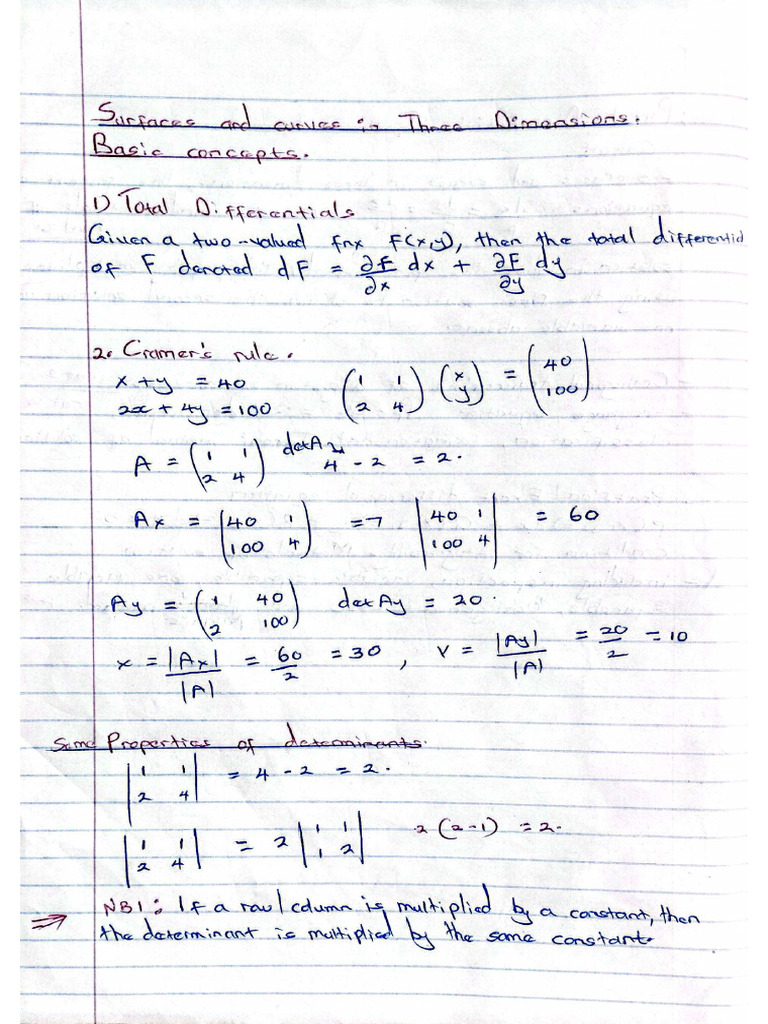 Surfaces and curves in Three Dimensions.
Basic concepts.
1) Total Differentials
Given a two-valued fnx F(x,y), then the total differential
of F denoted dF = ∂F/∂x dx + ∂F/∂y dy
2. Cramer's rule.
x + y = 40
2x + 4y = 100
(1 1; 2 4) (x; y) = (40; 100)
A = (1 1; 2 4) det A ⇒ 4 - 2 = 2.
Ax = (40 1; 100 4) ⇒ |40 1; 100 4| = 60
Ay = (1 40; 2 100) det Ay = 20.
x = |Ax|/|A| = 60/2 = 30, Y = |Ay|/|A| = 20/2 = 10
Some Properties of determinants.
|1 1; 2 4| = 4 - 2 = 2.
|1 1; 2 4| = 2 |1 1; 1 2| 2(2-1) = 2.
⇒ NB1: If a row/column is multiplied by a constant, then
the determinant is multiplied by the same constant.